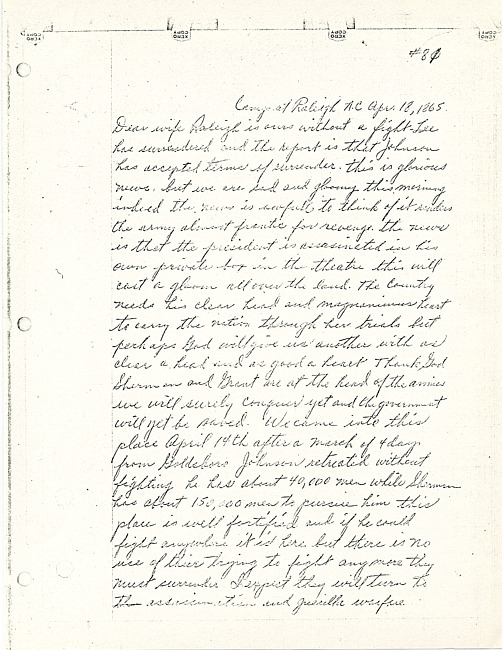 XERO COPY
XERO COPY
XERO COPY
XERO COPY
#80
Camp at Raleigh N.C Apr. 18, 1865.
Dear wife Raleigh is ours without a fight Lee
has surrendered and the report is that Johnson
has accepted terms of surrender. this is glorious
news. but we are sad and gloomy this morning
indeed the news is awfull to think of it renders
the army almost frantic for revenge. the news
is that the president is assasinated in his
own private box in the theatre this will
cast a gloom all over the land. The country
needs his clear head and magnanimous heart
to carry the nation through her trials but
perhaps God will give us another with as
clear a head and as good a heart Thank God
Sherman and Grant are at the head of the armies
we will surely conquer yet and the government
will yet be saved. We came into this
place April 14th after a march of 4 days
from Goldsboro Johnson retreated without
fighting he has about 40,000 men while Sherman
has about 150,000 men to pursue him this
place is well fortified and if he could
fight anywhere it is here but there is no
use of their trying to fight anymore they
must surrender I expect they will turn to
the assasination and guerilla warfare